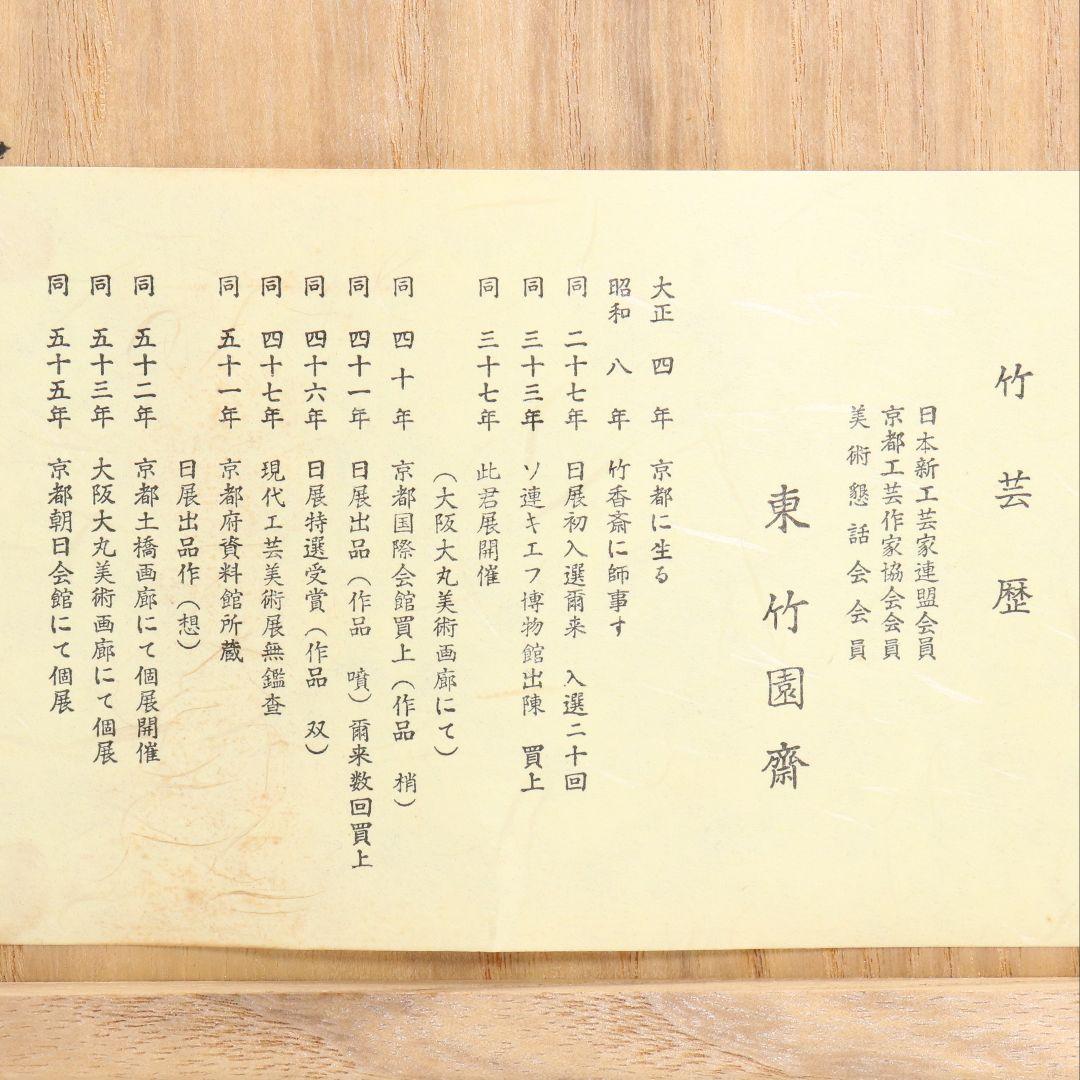 竹芸歴
日本新工芸家連盟会員
京都工芸作家協会会員
美術懇話会会員
東竹園齋
大正 四 年 京都に生る
昭和 八 年 竹香斎に師事す
同 二十七年 日展初入選爾来 入選二十回
同 三十三年 ソ連キエフ博物館出陳 買上
同 三十七年 此君展開催
(大阪大丸美術画廊にて)
同 四 十 年 京都国際会館買上(作品 梢)
同 四十一年 日展出品(作品 噴)爾来数回買上
同 四十六年 日展特選受賞(作品 双)
同 四十七年 現代工芸美術展無鑑査
同 五十一年 京都府資料館所蔵
日展出品作(想)
同 五十二年 京都土橋画廊にて個展開催
同 五十三年 大阪大丸美術画廊にて個展
同 五十五年 京都朝日会館にて個展